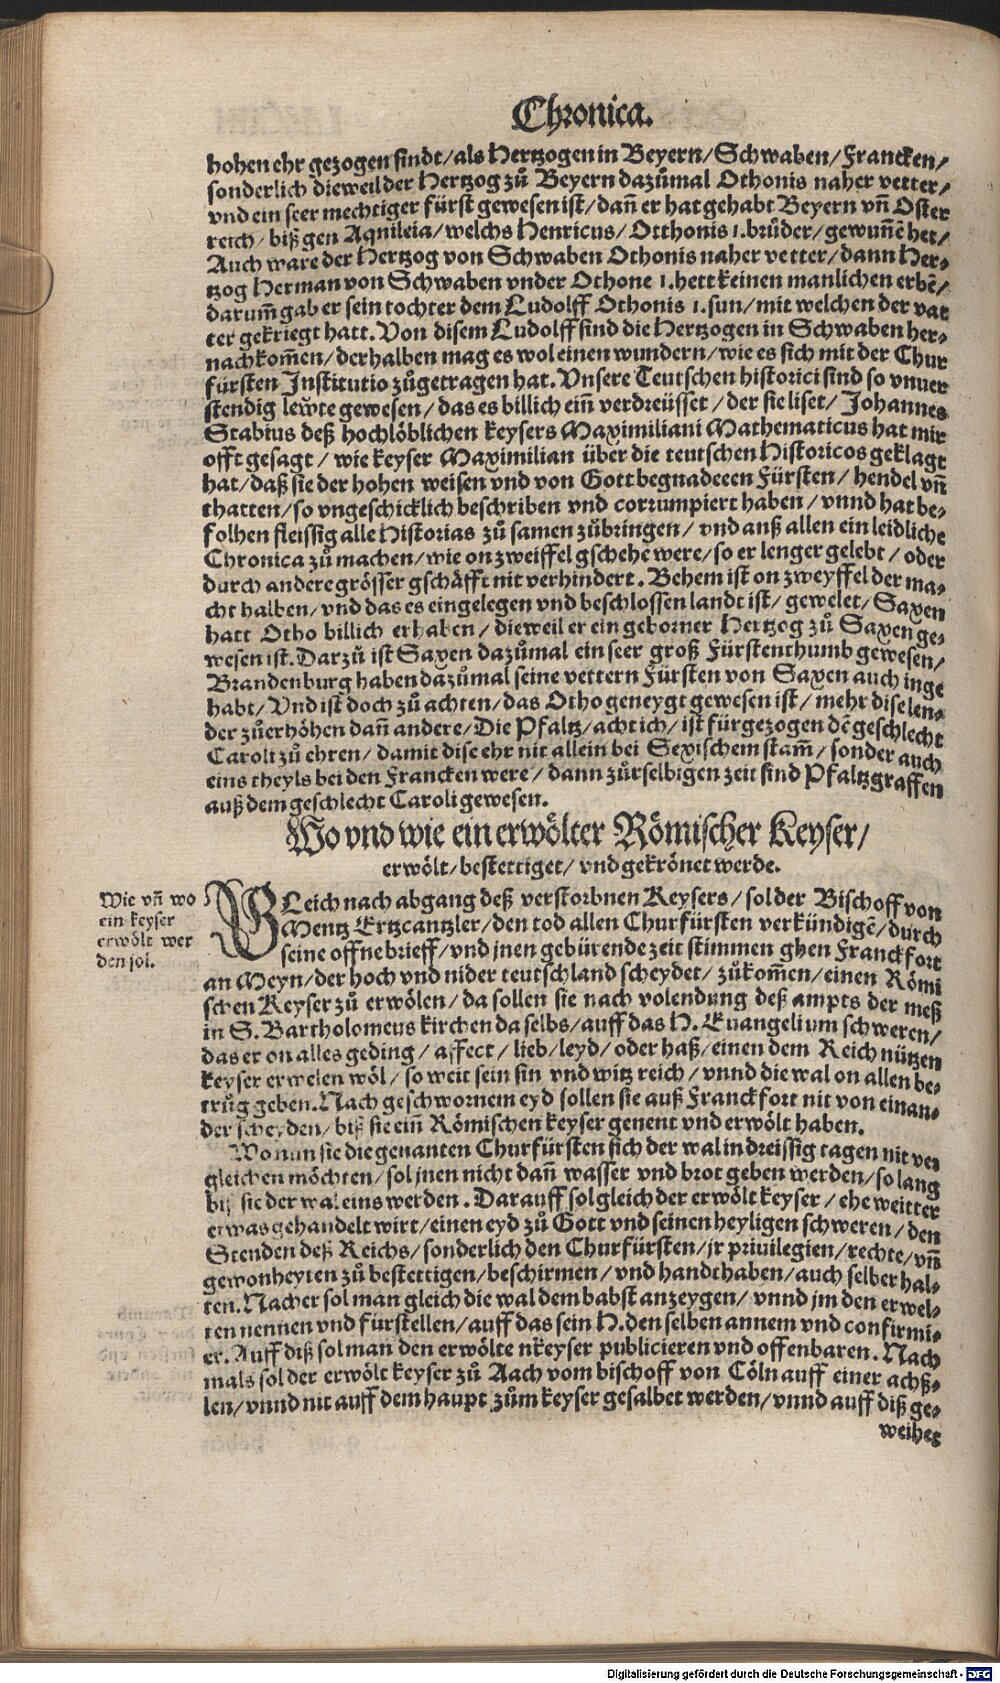 Chronica.
hohen ehr gezogen sindt/als Hertzogen in Beyern/Schwaben/Francken/
sonderlich dieweil der Hertzog zů Beyern dazůmal Othonis naher vetter/
vnd ein seer mechtiger fürst gewesen ist/dañ er hat gehabt Beyern vñ Oster
reich/biß gen Aquileia/welchs Henricus/Otthonis 1.brůder/gewuñē het/
Auch ware der Hertzog von Schwaben Othonis naher vetter/dann Her-
tzog Herman von Schwaben vnder Othone 1.hett keinen manlichen erbē/
darum̃ gab er sein tochter dem Ludolff Othonis 1.sun/mit welchen der vat
ter gekriegt hatt. Von disem Ludolff sind die Hertzogen in Schwaben her-
nachkom̃en/derhalben mag es wol einen wundern/wie es sich mit der Chur
fürsten Institutio zůgetragen hat. Vnsere Teutschen historici sind so vnuer
stendig lewte gewesen/das es billich eiñ verdreüsset/der sie liset/Johannes
Stabius deß hochlöblichen keysers Maximiliani Mathematicus hat mir
offt gesagt/wie keyser Maximilian über die teutschen Historicos geklagt
hat/daß sie der hohen weisen vnd von Gott begnadeeen Fürsten/hendel vñ
thatten/so vngeschicklich beschriben vnd corrumpiert haben/vnnd hat be-
folhen fleissig alle Historias zů samen zůbringen/vnd auß allen ein leidliche
Chronica zů machen/wie on zweiffel gschehē were/so er lenger gelebt/oder
durch andere grösser gschäfft nit verhindert. Behem ist on zweyffel der ma-
cht halben/vnd das es eingelegen vnd beschlossen landt ist/gewelet/Saxen
hatt Otho billich erhaben/dieweil er ein geborner Hertzog zů Saxen ge-
wesen ist. Darzů ist Saxen dazůmal ein seer groß Fürstenthumb gewesen/
Brandenburg haben dazůmal seine vettern Fürsten von Saxen auch inge
habt/Vnd ist doch zů achten/das Otho geneygt gewesen ist/mehr dise len-
der zůerhöhen dañ andere/Die Pfaltz/acht ich/ist fürgezogen dē geschlecht
Caroli zů ehren/damit dise ehr nit allein bei Sexischem stam̃/sonder auch
eins theyls bei den Francken were/dann zůrselbigen zeit sind Pfaltzgraffen
auß dem geschlecht Caroli gewesen.
Wo vnd wie ein erwölter Römischer Keyser/
erwölt/bestettiget/vnd gekrönet werde.
Wie vñ wo
ein keyser
erwölt wer
den sol.
GLeich nach abgang deß verstorbnen Keysers/sol der Bischoff von
Mentz Ertzcantzler/den tod allen Churfürsten verkündigē/durch
seine offne brieff/vnd jnen gebürende zeit stimmen ghen Franckfort
an Meyn/der hoch vnd nider teutschland scheydet/zůkom̃en/einen Römi
schen Keyser zů erwölen/da sollen sie nach volendung deß ampts der meß
in S. Bartholomeus kirchen daselbs/auff das H. Euangelium schweren/
das er on alles geding/affect/lieb/leyd/oder haß/einen dem Reich nützen
keyser erwelen wöl/so weit sein sin vnd witz reich/vnnd die wal on allen be-
trůg geben. Nach geschwornem eyd sollen sie auß Franckfort nit von einan-
der scheyden/biß sie eiñ Römischen keyser genent vnd erwölt haben.
Wo nun sie die genanten Churfürsten sich der wal in dreissig tagen nit ver
gleichen möchten/sol jnen nicht dañ wasser vnd brot geben werden/so lang
biß sie der wal eins werden. Darauff sol gleich der erwölt keyser/ehe weitter
etwas gehandelt wirt/einen eyd zů Gott vnd seinen heyligen schweren/den
Stenden deß Reichs/sonderlich den Churfürsten/jr priuilegien/rechte/vñ
gewonheyten zů bestettigen/beschirmen/vnd handthaben/auch selber hal-
ten. Nacher sol man gleich die wal dem babst anzeygen/vnnd jm den erwel-
ten nennen vnd fürstellen/auff das sein H. den selben annem vnd confirmi-
er. Auff diß sol man den erwölte nkeyser publicieren vnd offenbaren. Nach
mals sol der erwölt keyser zů Aach vom bischoff von Cöln auff einer achß-
len/vnnd nit auff dem haupt zům keyser gesalbet werden/vnnd auff diß ge-
weihet
Digitalisierung gefördert durch die Deutsche Forschungsgemeinschaft - DFG